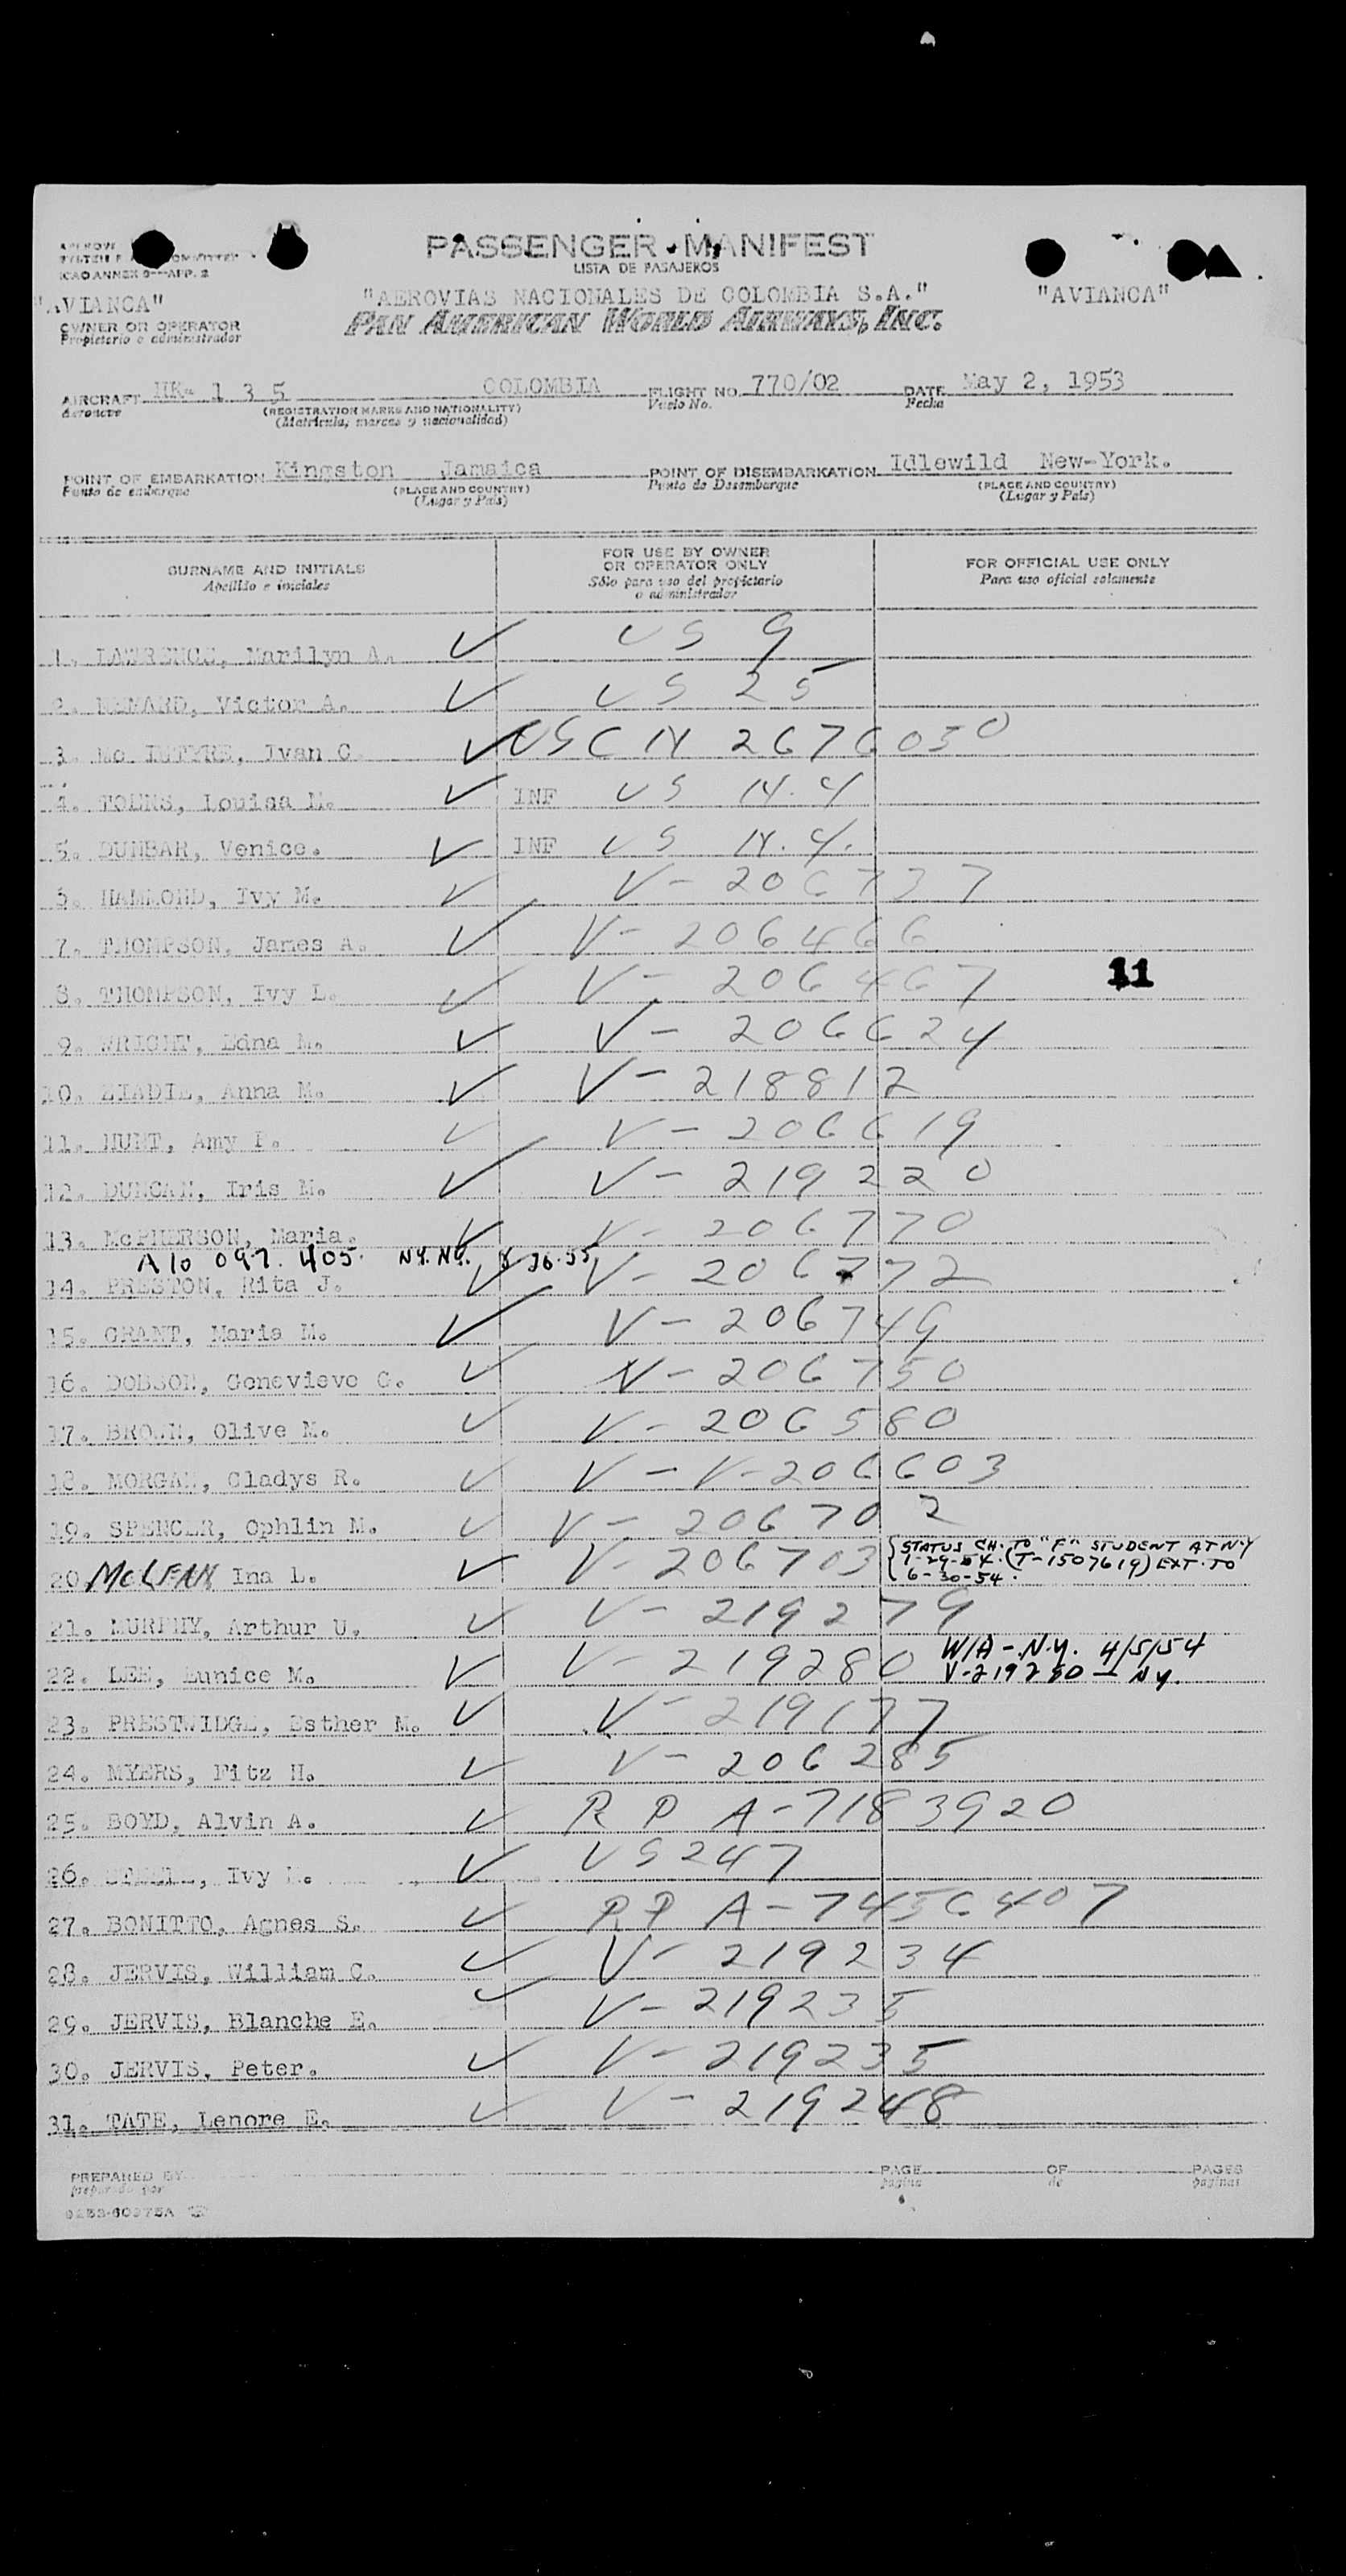 PASSENGER MANIFEST
LISTA DE PASAJEROS
ICAO ANNEX 9—APP. 2
"AVIANCA" "AEROVIAS NACIONALES DE COLOMBIA S.A." "AVIANCA"
PAN AMERICAN WORLD AIRWAYS, INC.
OWNER OR OPERATOR
Propietario o administrador
AIRCRAFT HK- 1 3 5 COLOMBIA FLIGHT NO. 770/02 DATE May 2, 1953
Aeronave (REGISTRATION MARKS AND NATIONALITY) Vuelo No. Fecha
(Matrícula, marcas y nacionalidad)
POINT OF EMBARKATION Kingston Jamaica POINT OF DISEMBARKATION Idlewild New-York.
Punto de embarque (PLACE AND COUNTRY) Punto de Desembarque (PLACE AND COUNTRY)
(Lugar y País) (Lugar y País)
SURNAME AND INITIALS FOR USE BY OWNER OR OPERATOR ONLY FOR OFFICIAL USE ONLY
Apellido e iniciales Sólo para uso del propietario o administrador Para uso oficial solamente
1. LAWRENCE, Marilyn A. ✓ US 9
2. Victor A. ✓ US 25
3. Mc INTYRE, Ivan C. ✓ USC N 2676030
4. Louisa M. ✓ INF US N.Y
5. DUNBAR, Venice. ✓ INF US N.Y.
6. HAMMOND, Ivy M. ✓ V-206737
7. THOMPSON, James A. ✓ V-206466
8. THOMPSON, Ivy L. ✓ V-206467 11
9. WRIGHT, Edna M. ✓ V-206624
10. ZIADIE, Anna M. ✓ V-218812
11. HUNT, Amy ✓ V-206619
12. DUNCAN, Iris M. ✓ V-219220
13. McPHERSON, Maria. ✓ V-206770
A10 097. 405. NY.NY. 8 26.55
14. PRESTON, Rita J. ✓ V-206772
15. GRANT, Maria M. ✓ V-206749
16. DOBSON, Genevieve C. ✓ V-206750
17. BROWN, Olive M. ✓ V-206580
18. MORGAN, Gladys R. ✓ V-V-206603
19. SPENCER, Ophlin M. ✓ V-206702
20. McLEAN Ina L. ✓ V-206703 STATUS CH. TO "F" STUDENT AT N.Y
1-29-54. (T-1507619) EXT. TO
6-30-54.
21. MURPHY, Arthur U. ✓ V-219279
22. LEE, Eunice M. ✓ V-219280 W/A-N.Y. 4/5/54
V-219280 — NY.
23. PRESTWIDGE, Esther M. ✓ V-219177
24. MYERS, Fitz H. ✓ V-206285
25. BOYD, Alvin A. ✓ R P A-7183920
26. Ivy ✓ US247
27. BONITTO, Agnes S. ✓ RP A-7456407
28. JERVIS, William C. ✓ V-219234
29. JERVIS, Blanche E. ✓ V-219235
30. JERVIS, Peter. ✓ V-219235
31. TATE, Lenore E. ✓ V-219248
PREPARED BY PAGE OF PAGES
preparado por pagina de paginas